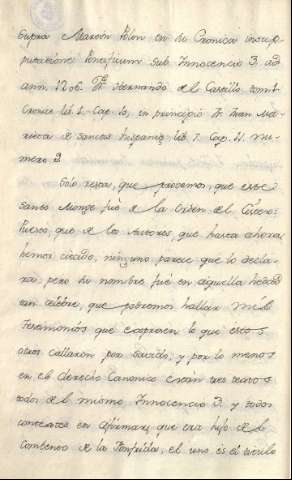 supra Marcon Polon en su Cronica
Pontificum sub Innocencio 3. ad
ann. 1206. Fr. Hernando del Castillo tom. 1
Cronica lib. 1. Cap. 10. in principio Fr. Juan Ma-
rieta de Sanctos Hispaniæ lib. 7. Cap. 41. nu-
mero 3
Solo resta, que provemos, que este
Santo Monge fué de la Orden del
que de los Autores, que hasta ahora
hemos citado, ninguno parece que lo decla-
ra; pero su nombre fué en aquella hedad
tan célebre, que podremos hallar mas
Testimonios que expresen lo que estos
otros callaron por savido, y por lo menos
en el derecho Canonico están tres textos
todos del mismo Innocencio 3. y todos
contextes en afirmar, que era hijo de el
Combento de la el uno es el